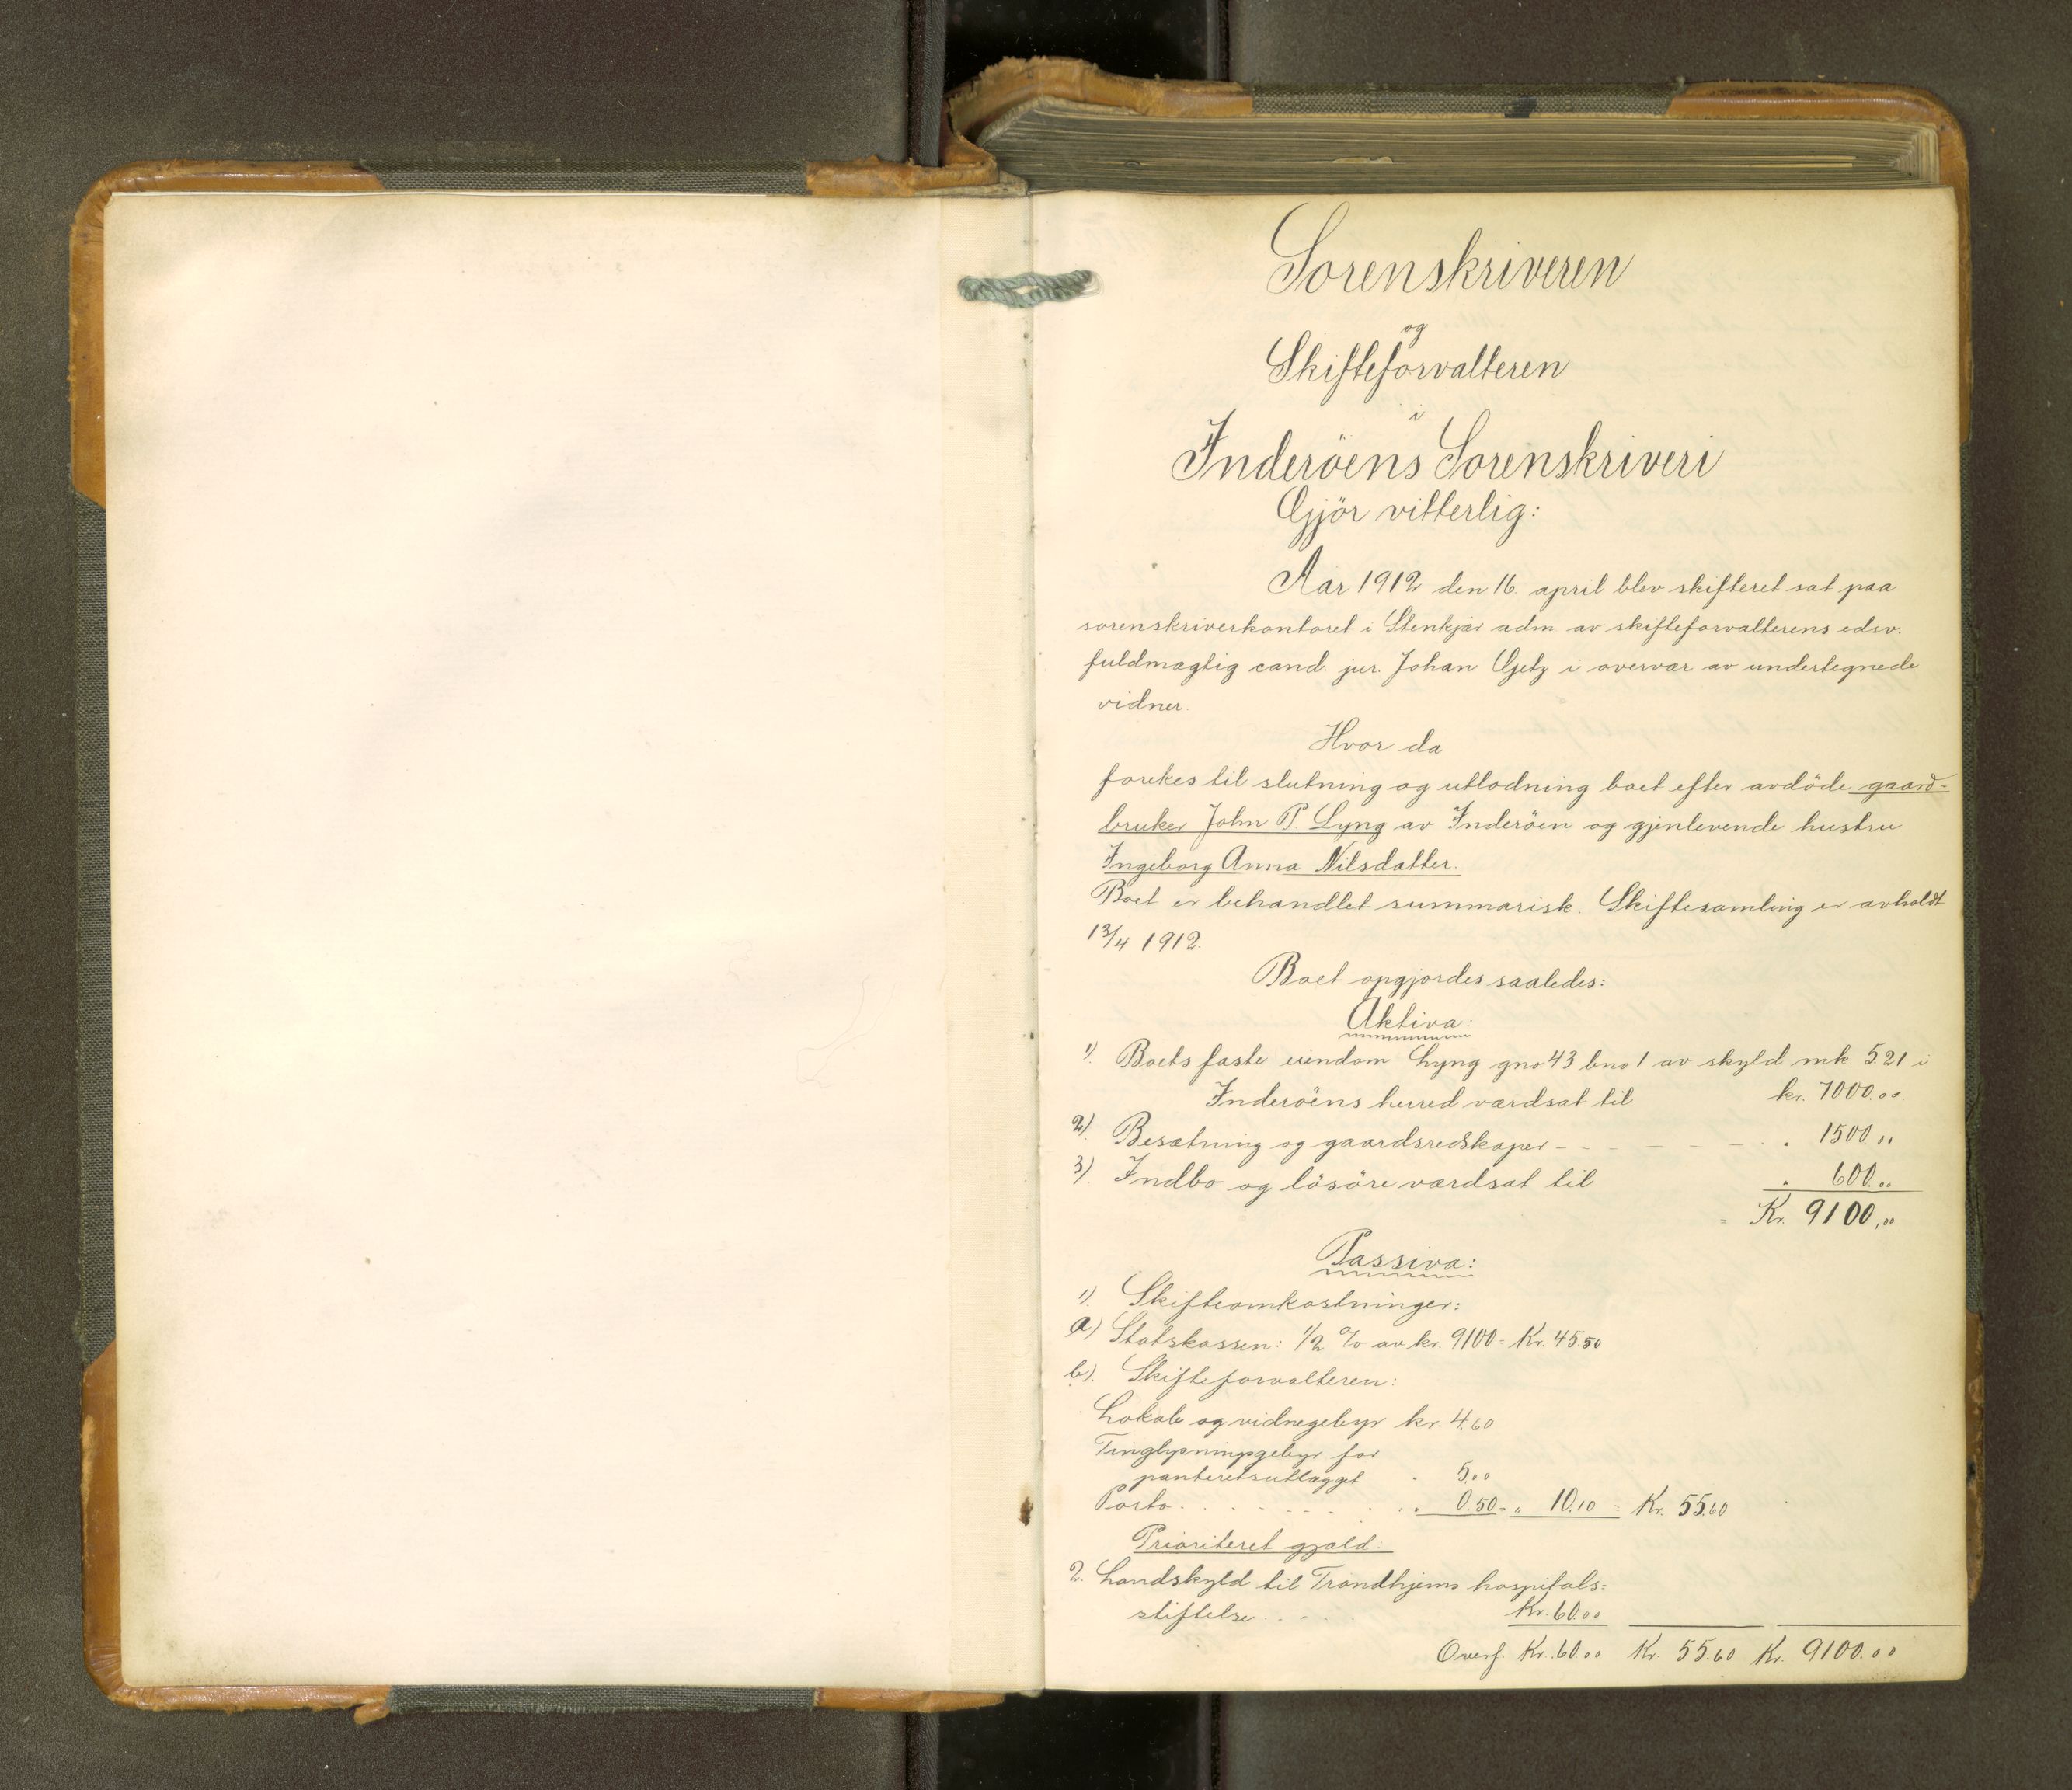 Sorenskriveren
og
Skifteforvalteren
i
Inderöens Sorenskriveri
Gjör vitterlig:
Aar 1912 den 16. april blev skifteret sat paa
sorenskriverkontoret i Stenkjær adm. av skifteforvalterens edsv.
fuldmægtig cand. jur. Johan Getz i overvær av undertegnede
vidner.
Hvor da
forekes til slutning og utlodning boet efter avdöde gaard-
bruker John P. Lyng av Inderöen og gjenlevende hustru
Ingeborg Anna Nilsdatter.
Boet er behandlet summarisk. Skiftesamling er avholdt
13/4 1912.
Boet opgjordes saaledes:
Aktiva:
1). Boets faste eiendom Lyng gno 43 bno 1 av skyld mk. 5.21 i
Inderöens herred værdsat til kr. 7000.00.
2). Besætning og gaardsredskaper - - - - - - „ 1500.00
3). Indbo og lösöre værdsat til „ 600.00
= Kr. 9100,00
Passiva:
1). Skifteomkostninger:
a) Statskassen: 1/2 % av kr. 9100 = Kr. 45.50
b). Skifteforvalteren:
Lokale og vidnegebyr kr. 4.60
Tinglysningsgebyr for
panteretsutlægget „ 5.00
Porto. . . . . . . . „ 0.50 = „ 10.10 = Kr. 55.60
Prioriteret gjæld:
2. Landskyld til Trondhjems hospitals=
stiftelse . . . . Kr. 60.00
Overf. Kr. 60.00 Kr. 55.60 Kr. 9100.00